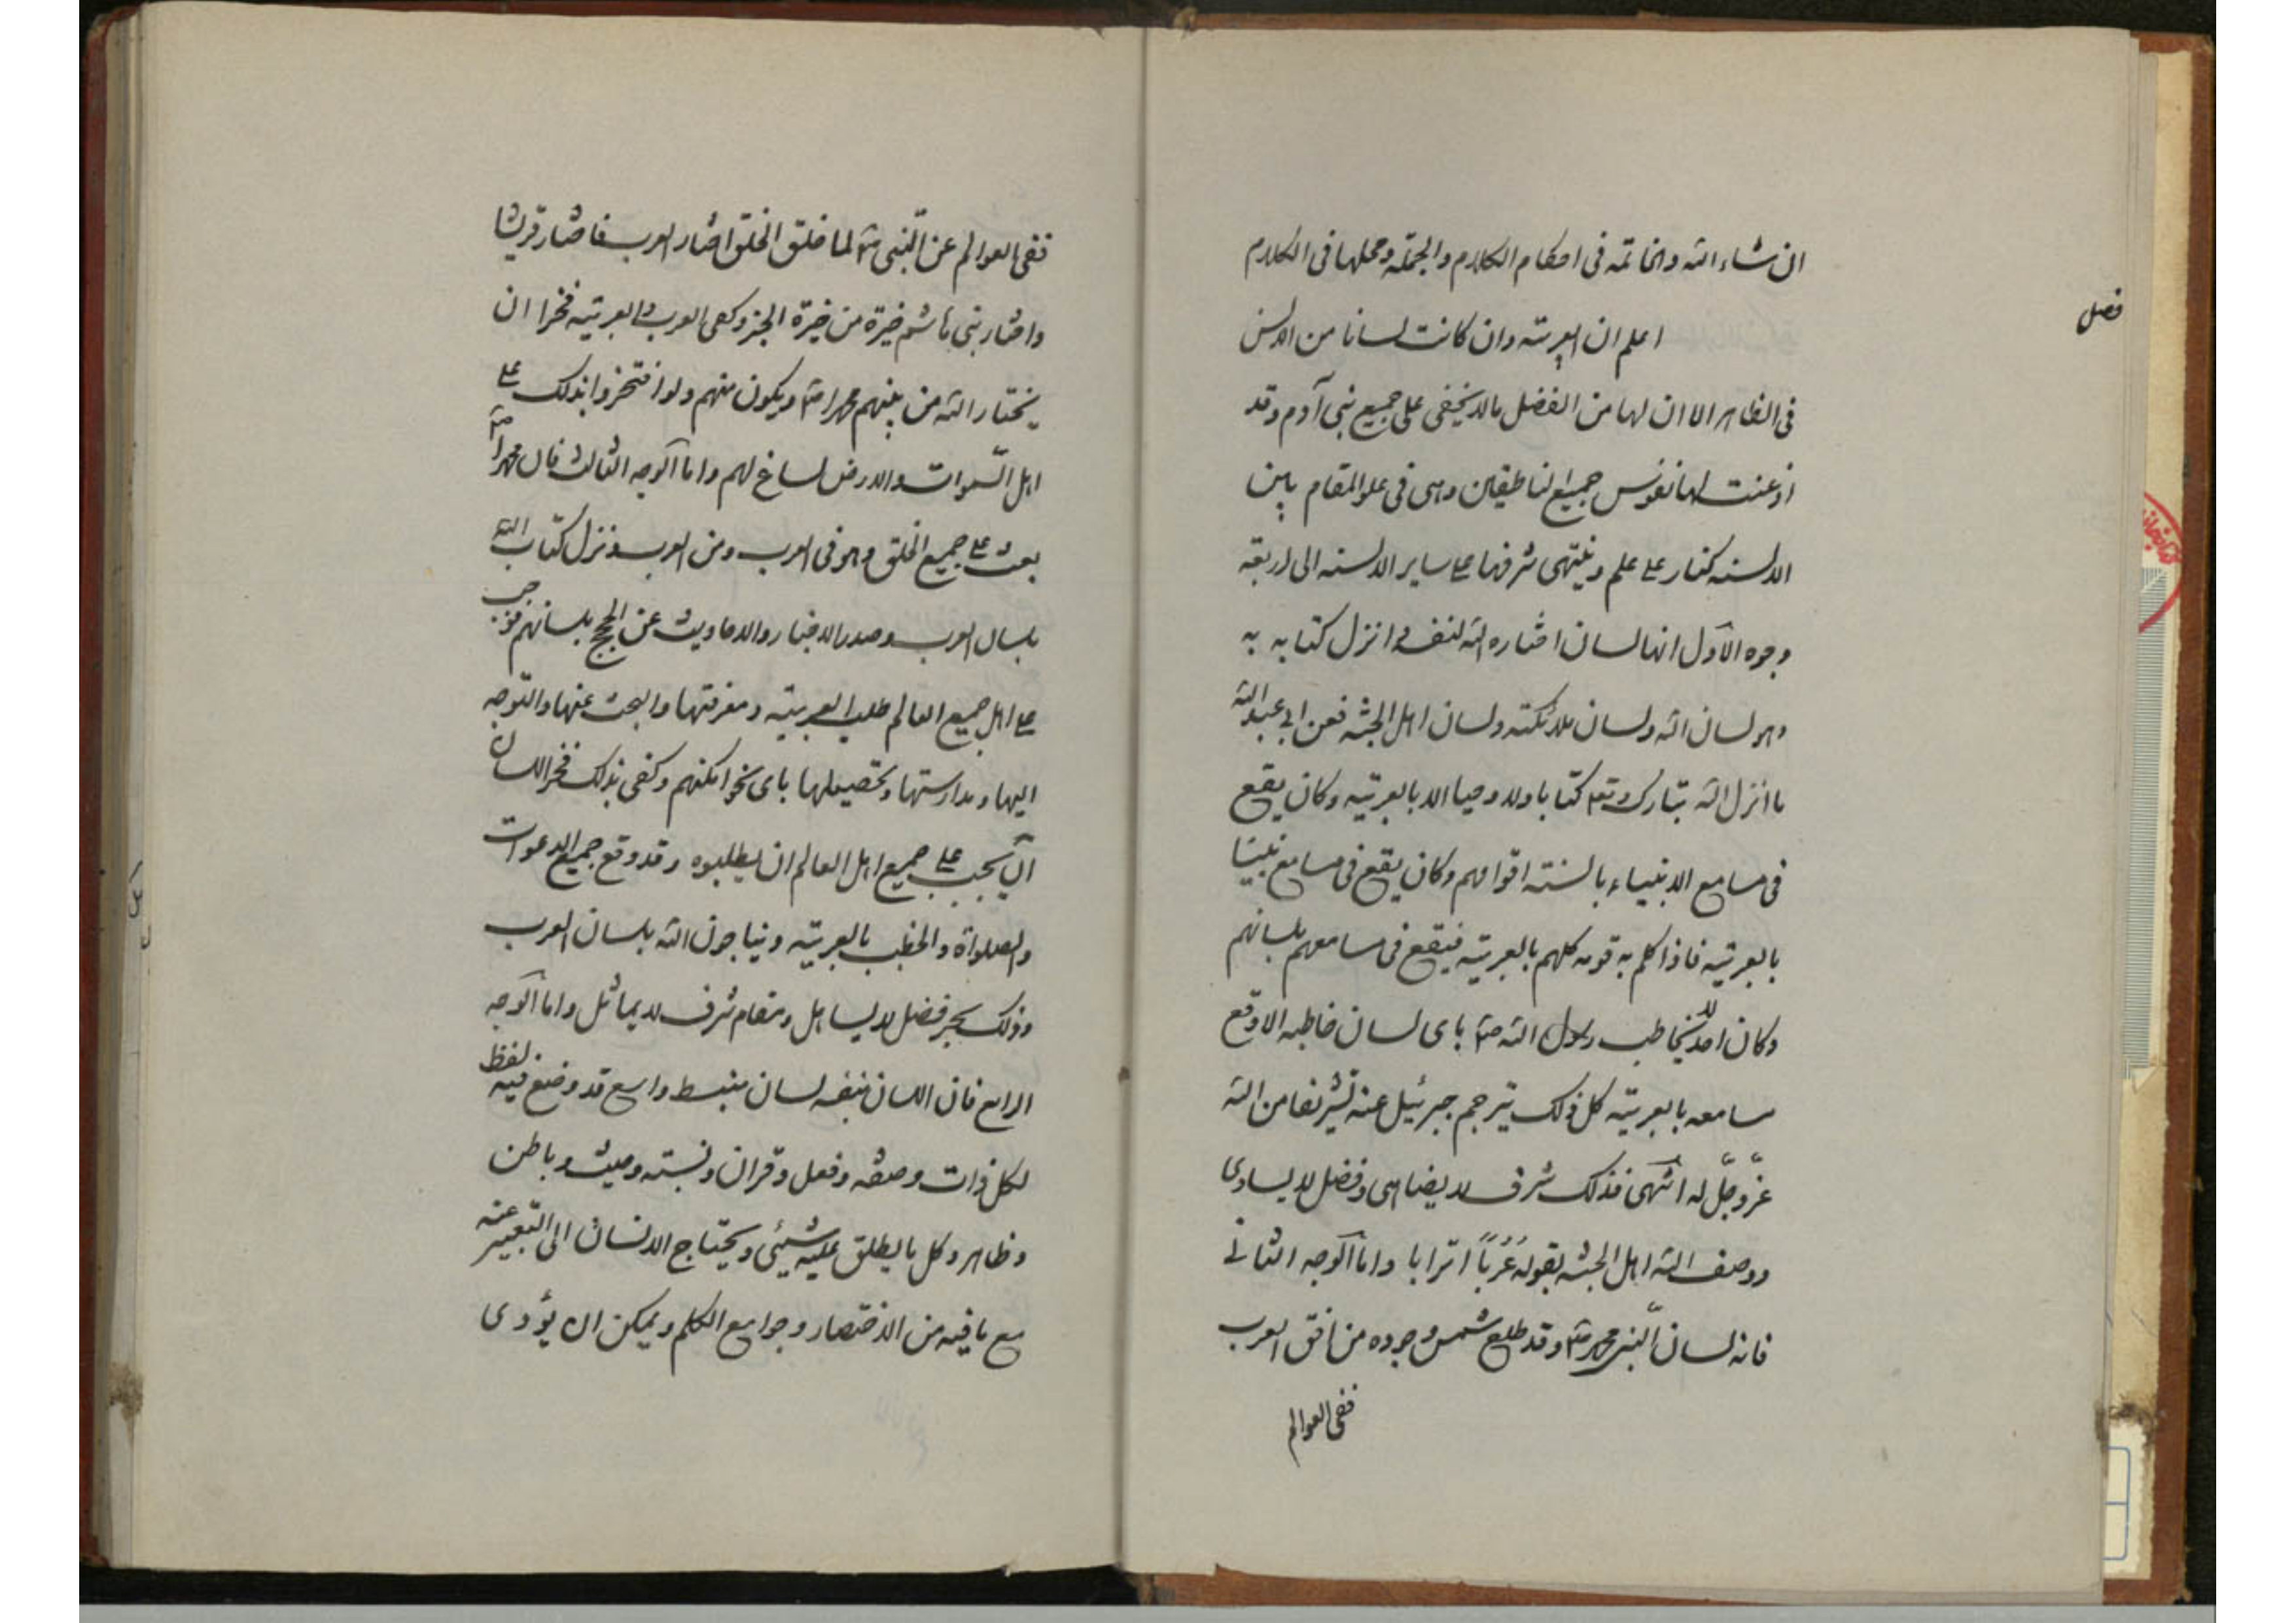 ان شاء الله والخاتمه فى احكام الكلام والجملة ومحلها فى الكلام
فصل
اعلم ان العربية وان كانت لسانا من الالسن
فى الظاهر الا ان لها من الفضل مالا يخفى على جميع بنى آدم وقد
اذعنت لها نفوس جميع الناطقين وهى فى علو المقام بين
الالسنه كنار على علم وينتهى شرفها على ساير الالسنه الى اربعة
وجوه الاول انها لسان اختاره الله لنفسه وانزل كتابه به
وهو لسان الله ولسان ملائكته ولسان اهل الجنة فعن ابى عبدالله
ما انزل الله تبارك وتع كتابا ولا وحيا الا بالعربية وكان يقع
فى مسامع الانبياء بالسنة اقوامهم وكان يقع فى مسامع نبينا
بالعربية فاذا كلم به قومه كلهم بالعربية فيقع فى مسامعهم بلسانهم
وكان احد لا يخاطب رسول الله ص باى لسان خاطبه الا وقع
مسامعه بالعربية كل ذلك يترجم جبرئيل عنه تشريفا من الله
عزّ وجلّ له انتهى فذلك شرف لا يضاهى وفضل لا يساوى
ووصف الله اهل الجنة بقوله عُرُباً اترابا واما الوجه الثانى
فانه لسان النبى محمد ص وقد طلع شمس وجوده من افق العرب
ففى العوالم
ففى العوالم عن النّبى ص لما خلق الخلق اختار العرب فاختار قريشا
واختار بنى هاشم خيرة من خيرة الخبر وكفى العرب والعربية فخرا ان
يختار الله من بينهم محمدا ص ويكون منهم ولو افتخروا بذلك على
اهل السّموات والارض لساغ لهم واما الوجه الثالث فان محمدا ص
بعث على جميع الخلق وهو فى العرب ومن العرب ونزل كتاب الله
بلسان العرب وصدر الاخبار والاحاديث عن الحجج بلسانهم فوجب
على اهل جميع العالم طلب العربية ومعرفتها والبحث عنها والتوجه
اليها ومدارستها وتحصيلها باى نحو امكنهم وكفى بذلك فخرا للسان
ان يجب على جميع اهل العالم ان يطلبوه وقد وقع جميع الدعوات
والصلواة والخطب بالعربية ويناجون الله بلسان العرب
وذلك بحر فضل لا يساهل ومقام شرف لا يماثل واما الوجه
الرابع فان اللسان بنفسه لسان منبسط واسع قد وضع فيه لفظ
لكل ذات وصفة وفعل وقران ونسبته وحيث وباطن
وظاهر وكل ما يطلق عليه شيئى ويحتاج الانسان الى التعبير عنه
مع ما فيه من الاختصار وجوامع الكلم ويمكن ان يؤدى